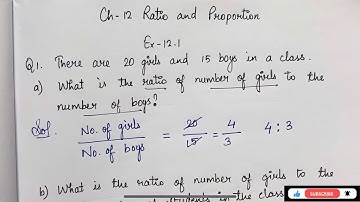 Ch-12 Ratio and Proportion
Ex-12.1
Q1. There are 20 girls and 15 boys in a class.
a) What is the ratio of number of girls to the
number of boys?
Sol. No. of girls / No. of boys = 20/15 = 4/3 4:3
b) What is the ratio of number of girls to the
students in the class
SUBSCRIBE